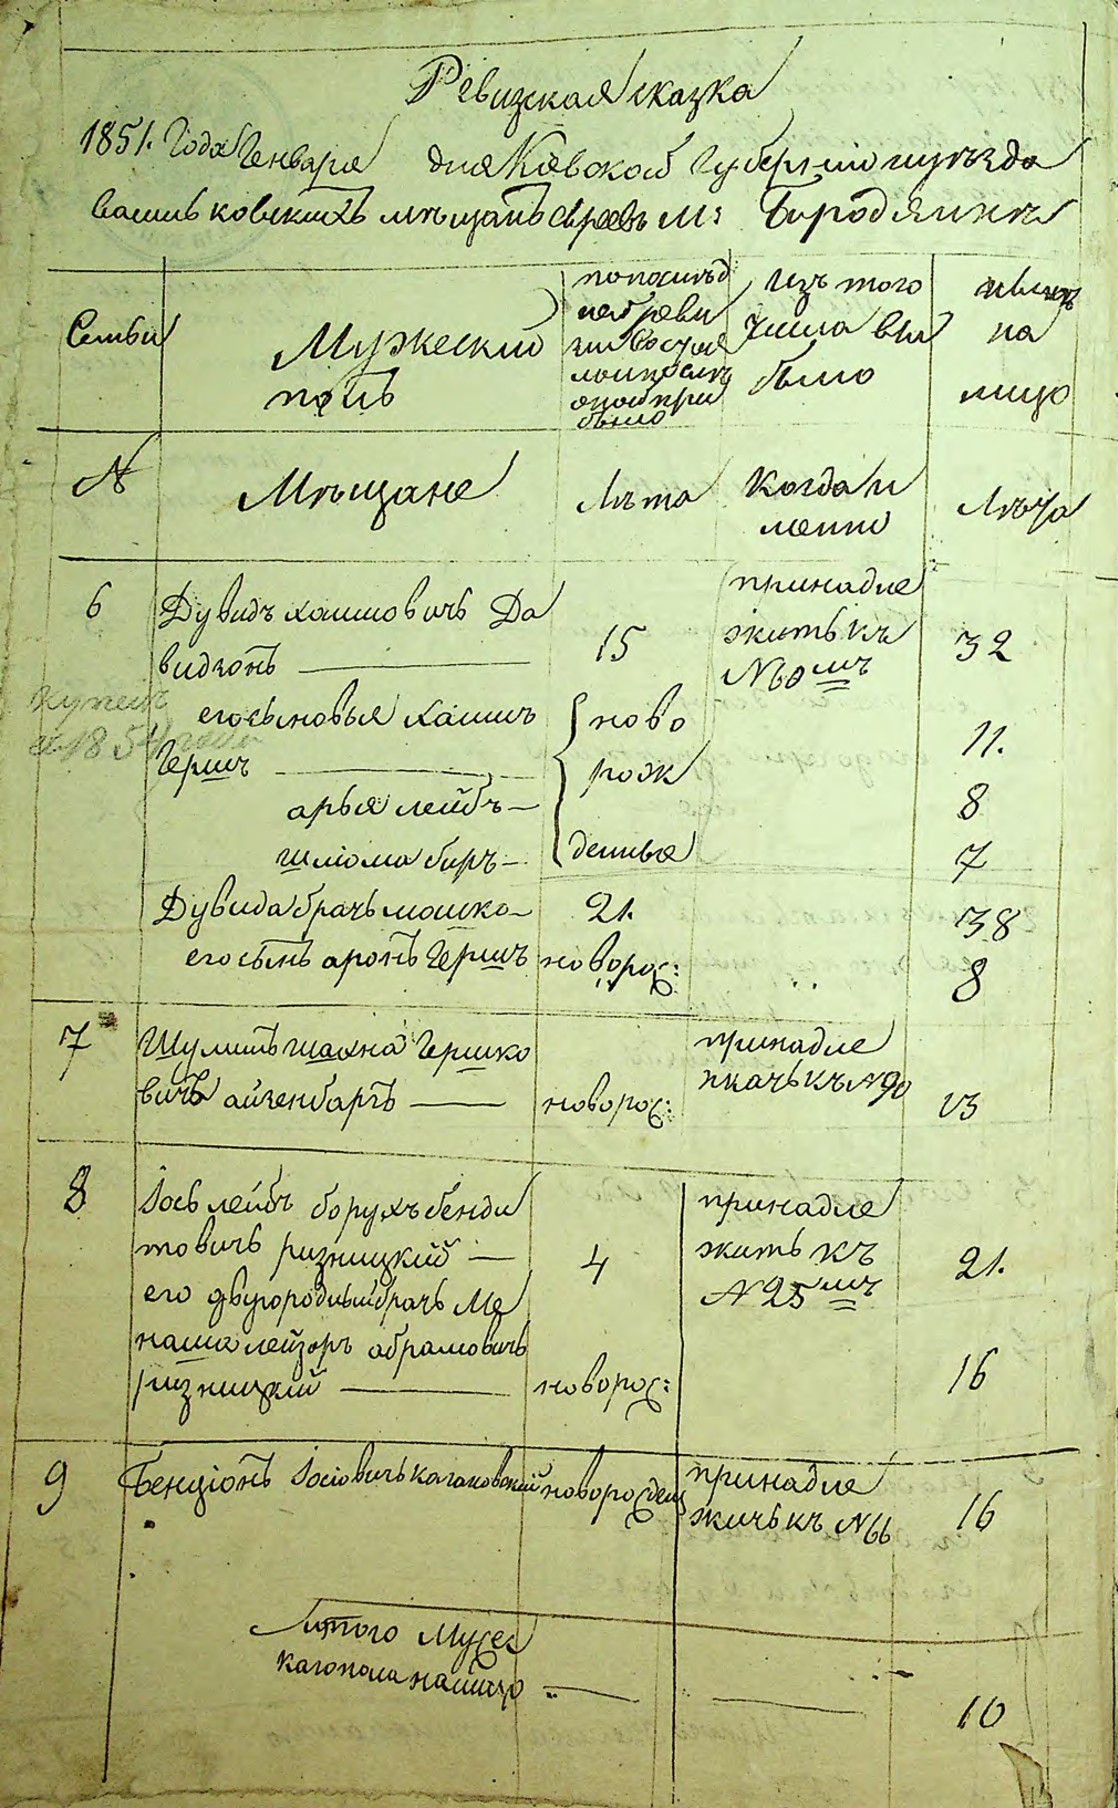 Ревизская сказка
1851. Года Генваря дня Кіевской Губерніи уѣзда
васильковскихъ мѣщанъ евреевъ М: Бородянки
Семьи
Мужескій
полъ
по послѣд
ней реви
зіи состоя
ло и послѣ
оной при
было
Изъ того
числа вы
было
нынѣ
на
лицо
№
Мѣщане
Лѣта
Когда и
менно
Лѣта
6
Дувидъ хаимовичъ Да
видзонъ
15
принадле
житъ къ
N 60мъ
32
его сыновья хаимъ
Гершъ
11.
арья лейбъ
8
шліома беръ
7
ново
рож
денные
купецъ
съ 1854 года
Дувида братъ мошко
21.
38
его сынъ аронъ Гершъ
новорож:
8
7
Шулимъ шахна Гершко
вичъ айзенбаргъ
новорож:
принадле
жатъ къ N 90
13
8
Іось лейбъ борухъ бенди
товичъ ризницкій
4
принадле
житъ къ
N 25мъ
21.
его двуюродный братъ Ме
наша лейзоръ абрамовичъ
ризницкій
новорож:
16
9
Бенціонъ Іосіовичъ кагановскій
новорожден
принадле
житъ къ N 66
16
Итого Мужес
каго пола на лицо
10